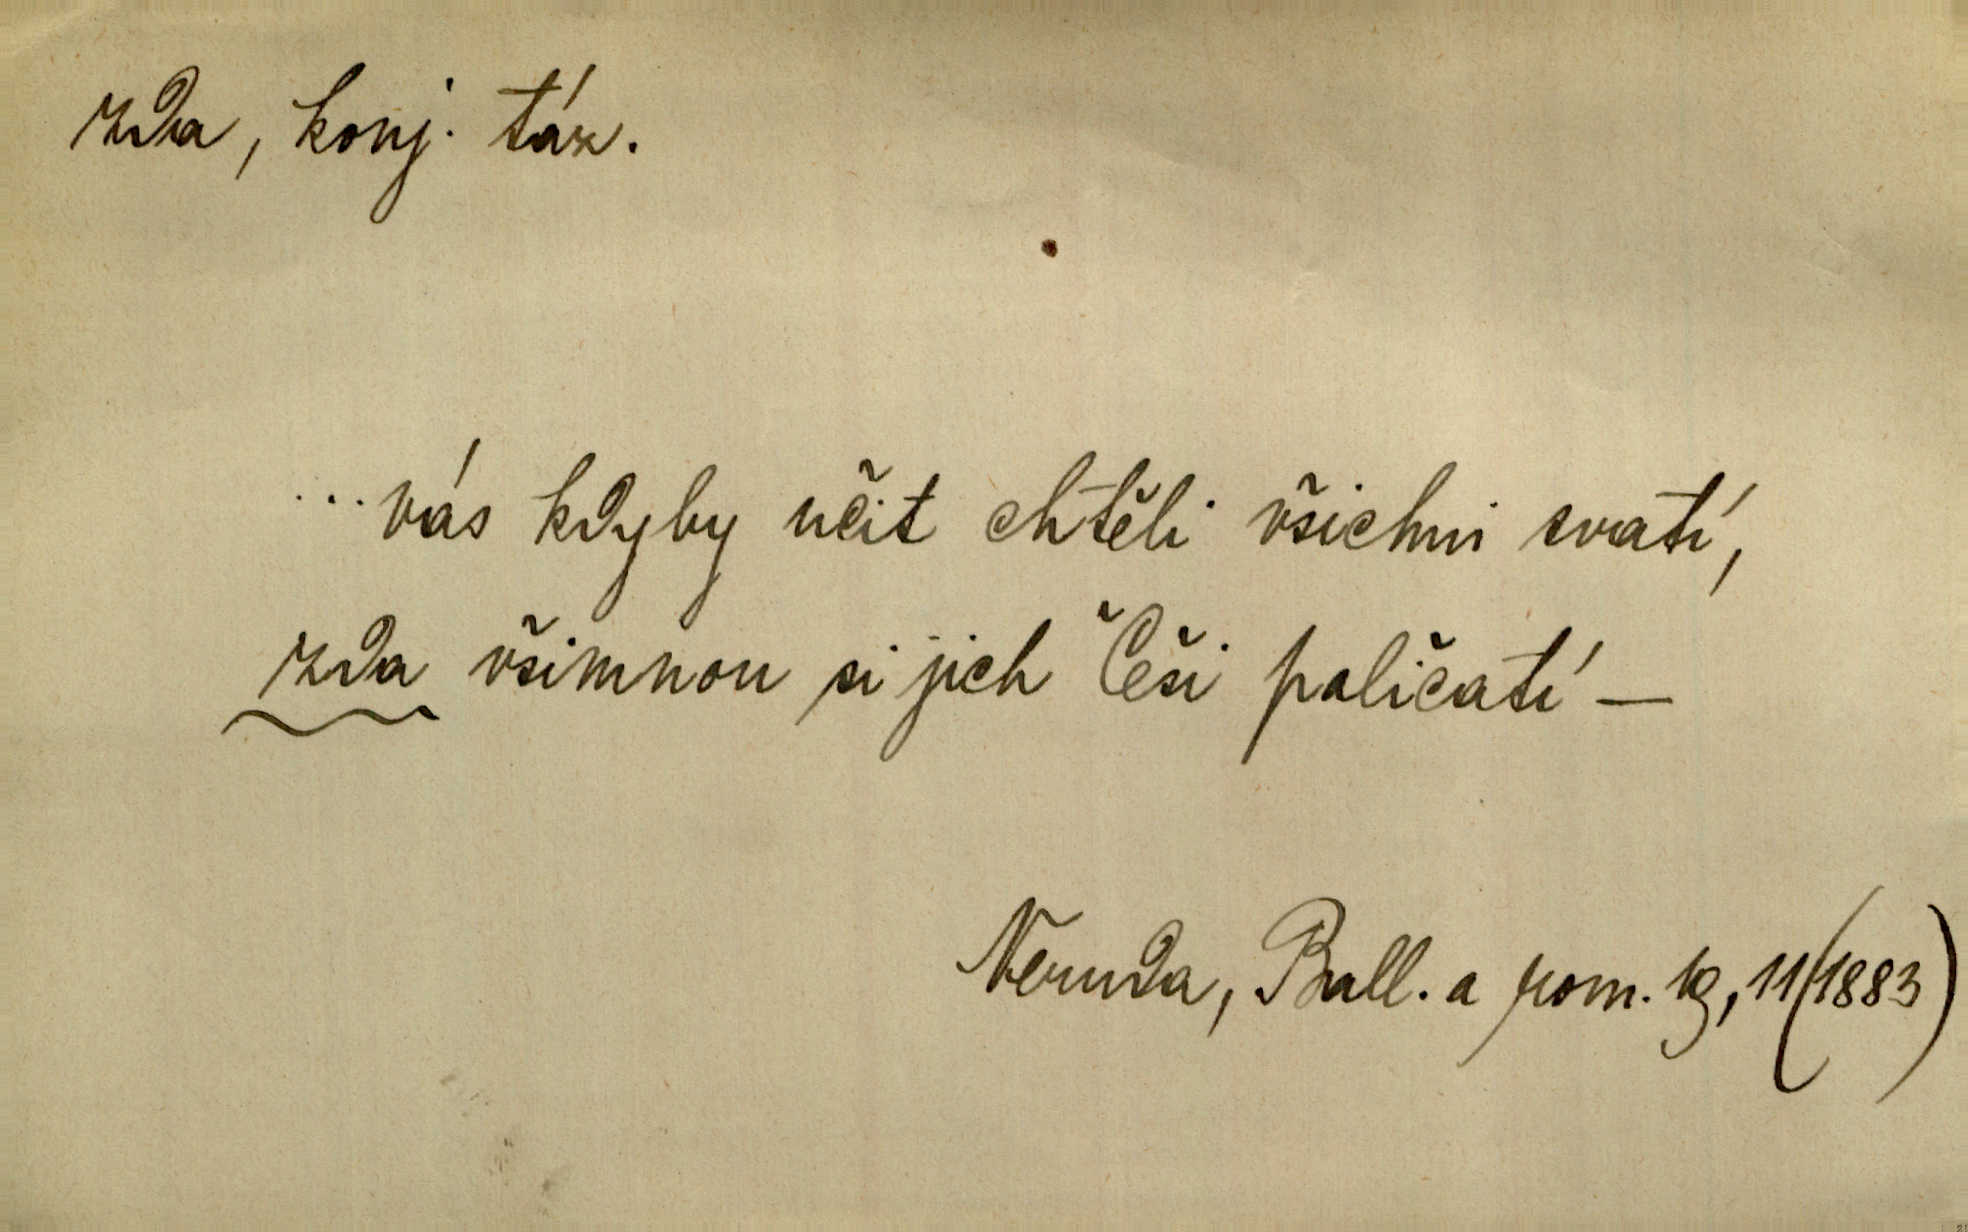 zda, konj. táz.
...vás kdyby učit chtěli všichni svatí,
zda všimnou si jich Češi paličatí —
Neruda, Ball. a rom. 19, 11 (1883)